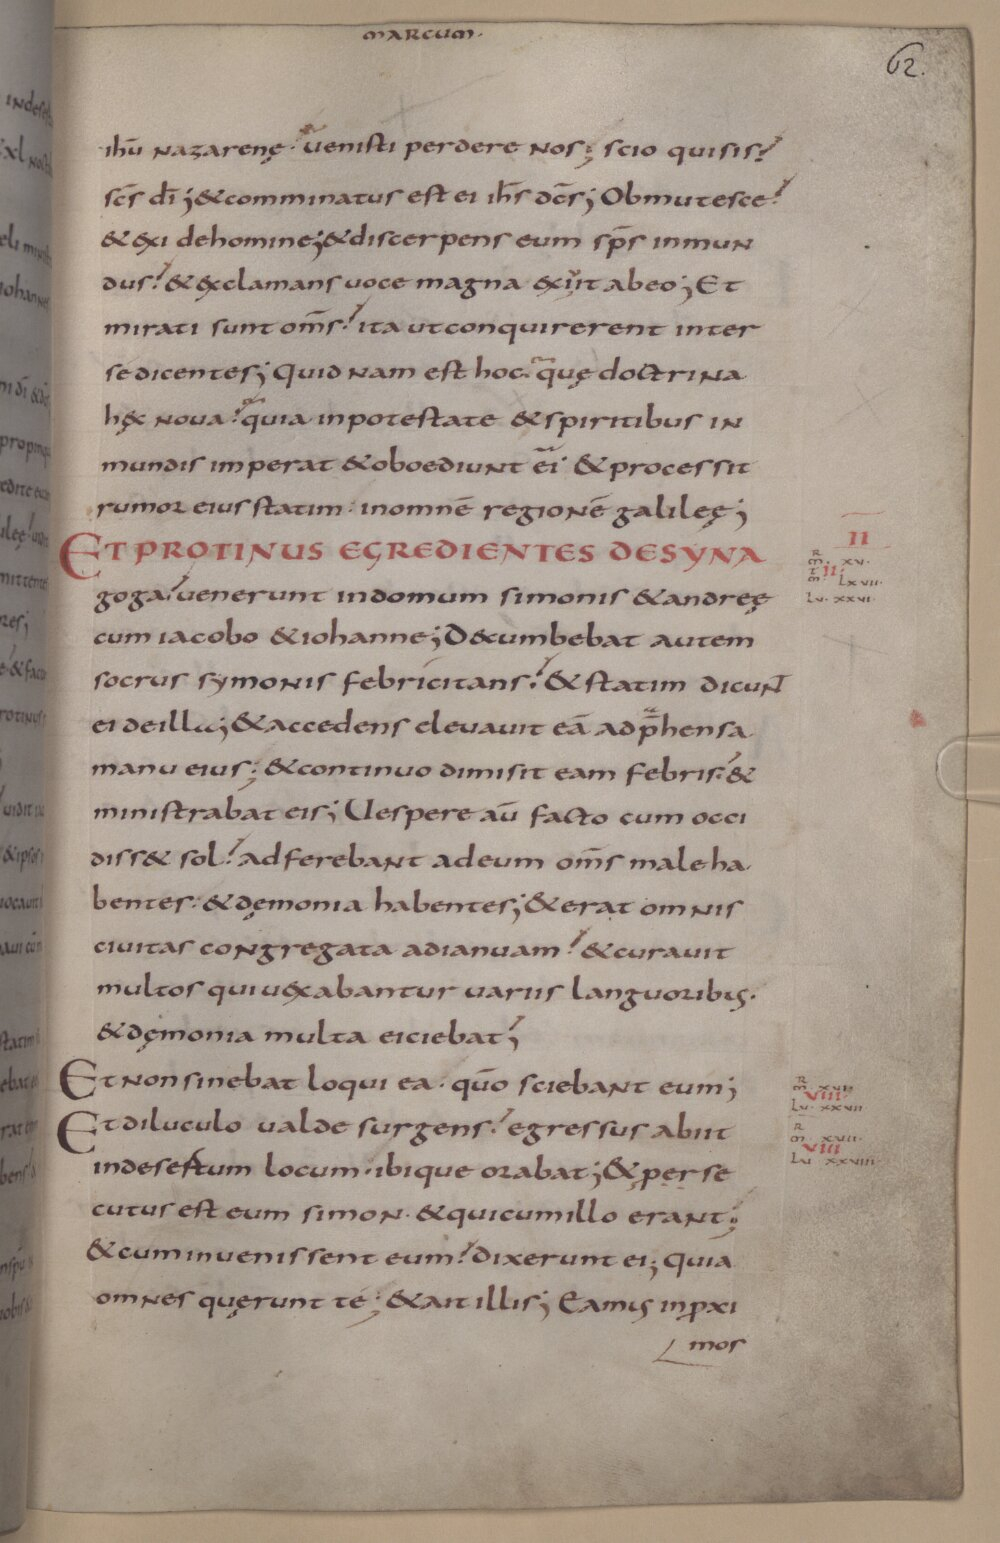 MARCUM.
62.
ihū nazarenę· venisti perdere nos; scio qui sis?
sc̄s dī; & comminatus est ei ih̄s dc̄s; Obmutesce
& exi de homine; & discerpens eum sp̄s inmun
dus. & exclamans voce magna exiit ab eo; Et
mirati sunt om̄s. ita ut conquirerent inter
se dicentes; Quid nam est hoc. quę doctrina
hęc nova. quia in potestate & spiritibus in
mundis imperat & oboediunt ei. & processit
rumor eius statim. in omnē regionē galileę;
ET PROTINUS EGREDIENTES DE SYNA
goga. venerunt in domum simonis & andreę
cum iacobo & iohanne; Decumbebat autem
socrus symonis febricitans. & statim dicunt
ei de illa; & accedens elevavit eā adp̄hensa
manu eius; & continuo dimisit eam febris. &
ministrabat eis; Vespere aū facto cum occi
diss& sol. adferebant ad eum om̄s male ha
bentes. & dęmonia habentes; & erat omnis
civitas congregata ad ianuam. & curavit
multos qui vexabantur variis languoribus.
& dęmonia multa eiciebat;
Et non sinebat loqui ea. qūo sciebant eum;
Et diluculo valde surgens. egressus abiit
in desertum locum. ibique orabat; & perse
cutus est eum simon. & qui cum illo erant;
& cum invenissent eum. dixerunt ei; Quia
omnes quęrunt te; & ait illis; Eamus in proxi
mos
II
MR. XV.
MT. II. LXVII.
LU. XXVI.
MR. XVI
VIII
LU. XXVII
MR. XVII.
VIII
LU XXVIII